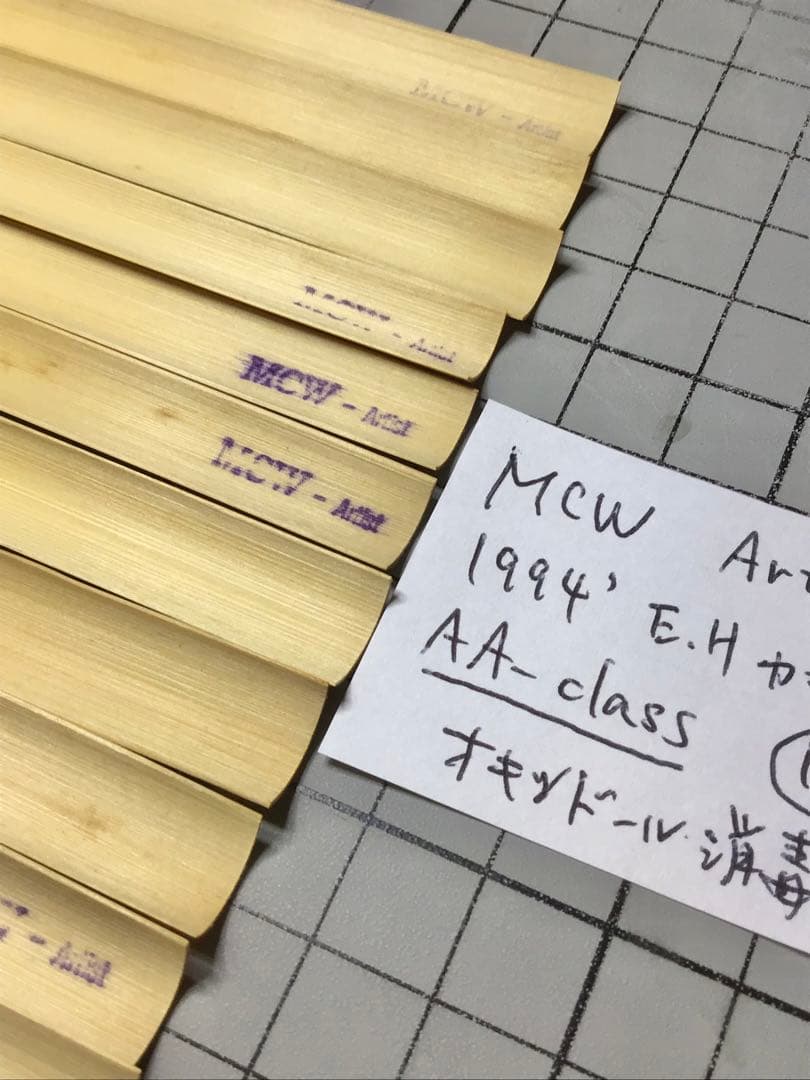 MCW - Artist
MCW - Artist
MCW - Artist
MCW - Artist
- Artist
MCW
1994' E.H
AA-class
オキシドール消毒